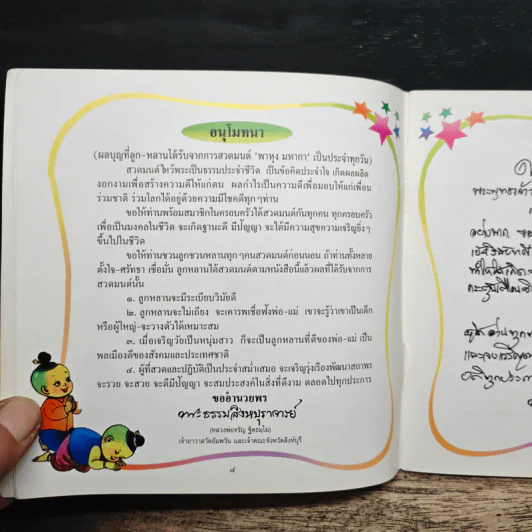 อนุโมทนา
(ผลบุญที่ลูก-หลานได้รับจากการสวดมนต์ "พาหุง มหากา" เป็นประจำทุกวัน)
สวดมนต์ไหว้พระเป็นธรรมประจำชีวิต เป็นข้อคิดประจำใจ เกิดผลผลิต
งอกงามเพื่อสร้างความดีให้แก่ตน ผลกำไรเป็นความดีเพื่อมอบให้แก่เพื่อน
ร่วมชาติ ร่วมโลกได้อยู่ด้วยความมีโชคดีทุก ๆ ท่าน
ขอให้ท่านพร้อมสมาชิกในครอบครัวได้สวดมนต์กันทุกคน ทุกครอบครัว
เพื่อเป็นมงคลในชีวิต จะเกิดฐานะดี มีปัญญา จะได้มีความสุขความเจริญยิ่งๆ
ขึ้นไปในชีวิต
ขอให้ท่านชวนลูกชวนหลานทุก ๆ คนสวดมนต์ก่อนนอน ถ้าท่านทั้งหลาย
ตั้งใจ-ศรัทธา เชื่อมั่น ลูกหลานได้สวดมนต์ตามหนังสือนี้แล้วผลที่ได้รับจากการ
สวดมนต์นั้น
๑. ลูกหลานจะมีระเบียบวินัยดี
๒. ลูกหลานจะไม่เถียง จะเคารพเชื่อฟังพ่อ-แม่ เขาจะรู้ว่าเขาเป็นเด็ก
หรือผู้ใหญ่-จะวางตัวได้เหมาะสม
๓. เมื่อเจริญวัยเป็นหนุ่มสาว ก็จะเป็นลูกหลานที่ดีของพ่อ-แม่ เป็น
พลเมืองดีของสังคมและประเทศชาติ
๔. ผู้ที่สวดและปฏิบัติเป็นประจำสม่ำเสมอ จะเจริญรุ่งเรืองพัฒนาสถาพร
จะรวย จะสวย จะดีมีปัญญา จะสมประสงค์ในสิ่งที่ดีงาม ตลอดไปทุกประการ
ขออำนวยพร
พระธรรมสิงหบุราจารย์
(หลวงพ่อจรัญ ฐิตธมฺโม)
เจ้าอาวาสวัดอัมพวัน และเจ้าคณะจังหวัดสิงห์บุรี
๔